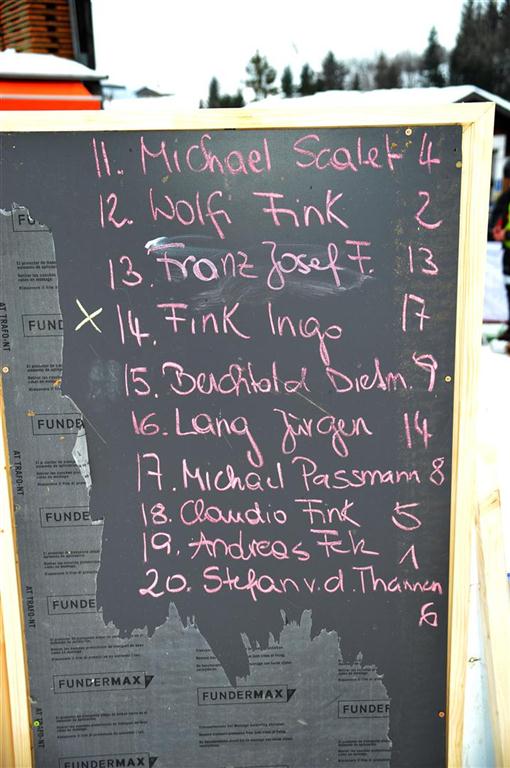 11. Michael Scalet 4
12. Wolfi Fink 2
13. Franz Josef F. 13
X 14. Fink Ingo 17
15. Berchtold Dietm. 9
16. Lang Jürgen 14
17. Michael Passmann 8
18. Claudio Fink 5
19. Andreas Feh 1
20. Stefan v. d. Thannen
6
FU
AT TRAFO-NT
FUND
FUNDE
AT TRAFO-NT
FUNDERM
FUNDE
AT TRAFO-NT
FUNDERMAX
FUNDERMAX
FUNDER
FUNDERMAX